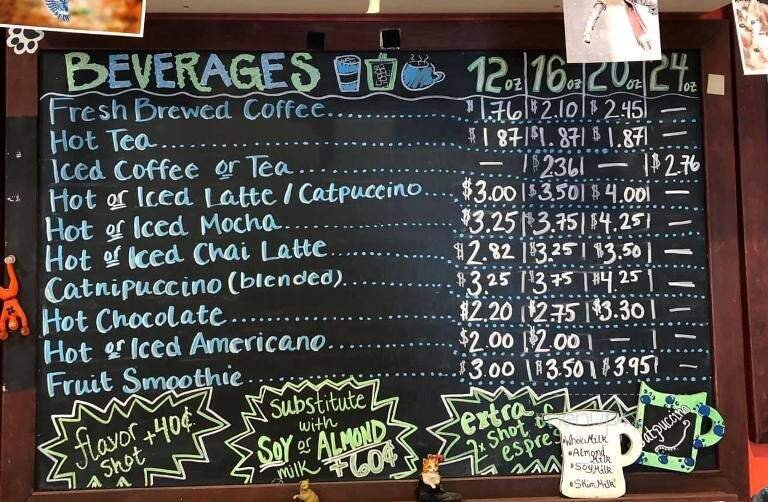 BEVERAGES 12oz 16oz 20oz 24oz
Fresh Brewed Coffee $1.76 $2.10 $2.45 —
Hot Tea $1.87 $1.87 $1.87 —
Iced Coffee or Tea — $2.36 — $2.76
Hot or Iced Latte / Catpuccino $3.00 $3.50 $4.00 —
Hot or Iced Mocha $3.25 $3.75 $4.25 —
Hot or Iced Chai Latte $2.82 $3.25 $3.50 —
Catnipuccino (blended) $3.25 $3.75 $4.25 —
Hot Chocolate $2.20 $2.75 $3.30 —
Hot or Iced Americano $2.00 $2.00 — —
Fruit Smoothie $3.00 $3.50 $3.95 —
flavor
shot +40¢
Substitute
with
SOY or ALMOND
milk +60¢
extra
shot of
Whole Milk
Almond Milk
Soy Milk
Skim Milk